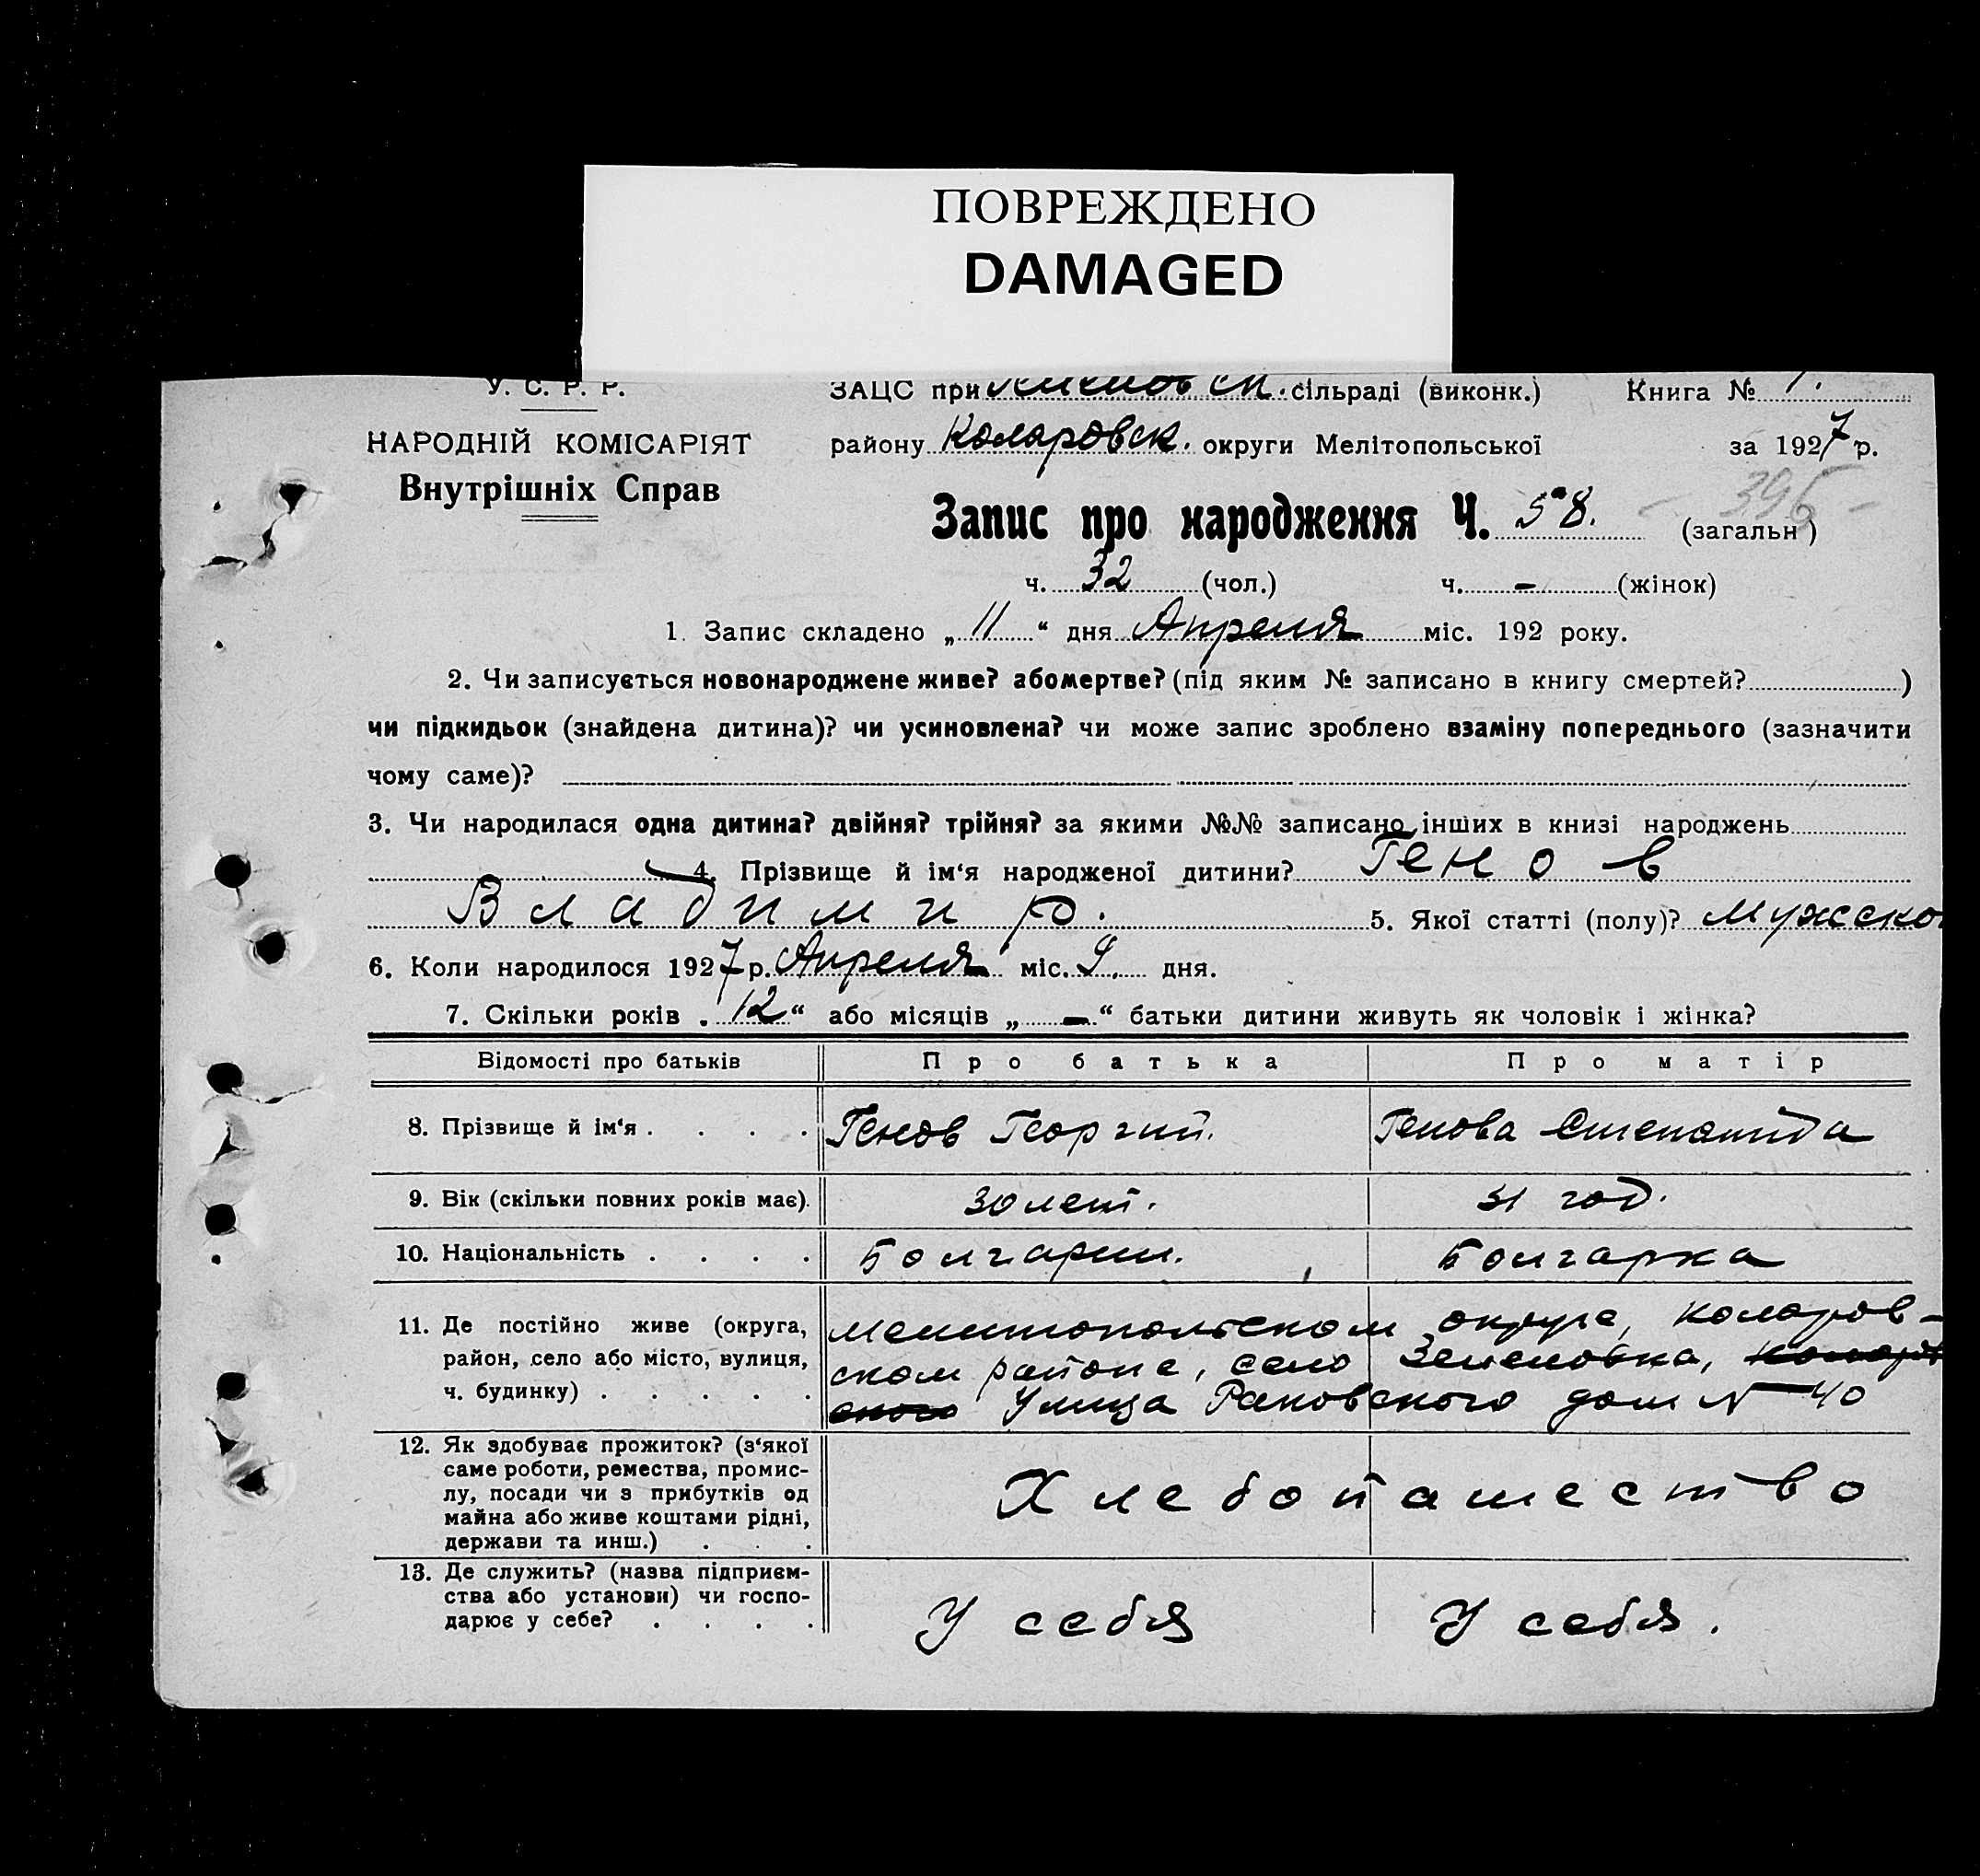 ПОВРЕЖДЕНО
DAMAGED
У. С. Р. Р. ЗАЦС при сільраді (виконк.) Книга № 1.
НАРОДНІЙ КОМІСАРІЯТ району Коларовск. округи Мелітопольської за 1927 р.
Внутрішніх Справ
396
Запис про народження Ч. 58. (загальн)
ч. 32 (чол.) ч. - (жінок)
1. Запис складено „ 11 “ дня Апреля міс. 192 року.
2. Чи записується новонароджене живе? абомертве? (під яким № записано в книгу смертей? )
чи підкидьок (знайдена дитина)? чи усиновлена? чи може запис зроблено взаміну попереднього (зазначити
чому саме)?
3. Чи народилася одна дитина? двійня? трійня? за якими №№ записано інших в книзі народжень
4. Прізвище й ім‘я народженої дитини? Генов
Владимир. 5. Якої статті (полу)? Мужско
6. Коли народилося 1927 р. Апреля міс. 9. дня.
7. Скільки років „ 12 “ або місяців „ - “ батьки дитини живуть як чоловік і жінка?
Відомості про батьків Про батька Про матір
8. Прізвище й ім‘я . . . . Генов Георгий. Генова Степанида
9. Вік (скільки повних років має). 30 лет. 31 год.
10. Національність . . . . Болгарин. Болгарка
11. Де постійно живе (округа, район, село або місто, вулиця, ч. будинку) . . . . .
Мелитопольском округе, Коларов-
ском районе, село Зеленовка,
Улица Раковского дом № 40
12. Як здобуває прожиток? (з‘якої
саме роботи, ремества, промис-
лу, посади чи з прибутків од
майна або живе коштами рідні,
держави та инш.) . . .
Хлебопашество
13. Де служить? (назва підприєм-
ства або установи) чи госпо-
дарює у себе? . . . .
У себя У себя.